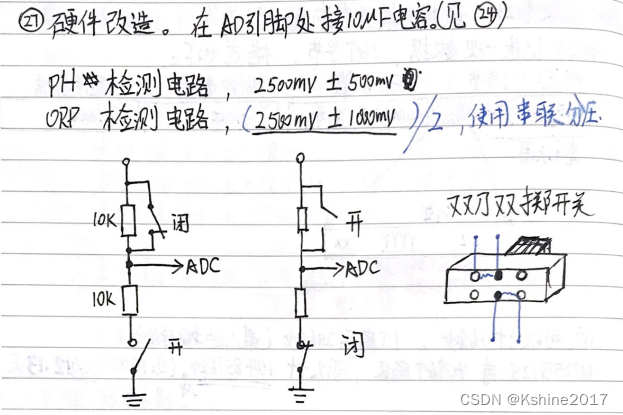 ㉑ 硬件改造。在AD引脚处接10μF电容。(见㉔)
PH 检测电路，2500mV ± 500mV
ORP 检测电路，(2500mV ± 1000mV)/2，使用串联分压
10K 闭
开
双刀双掷开关
→ADC
→ADC
10K
开
闭
CSDN @Kshine2017